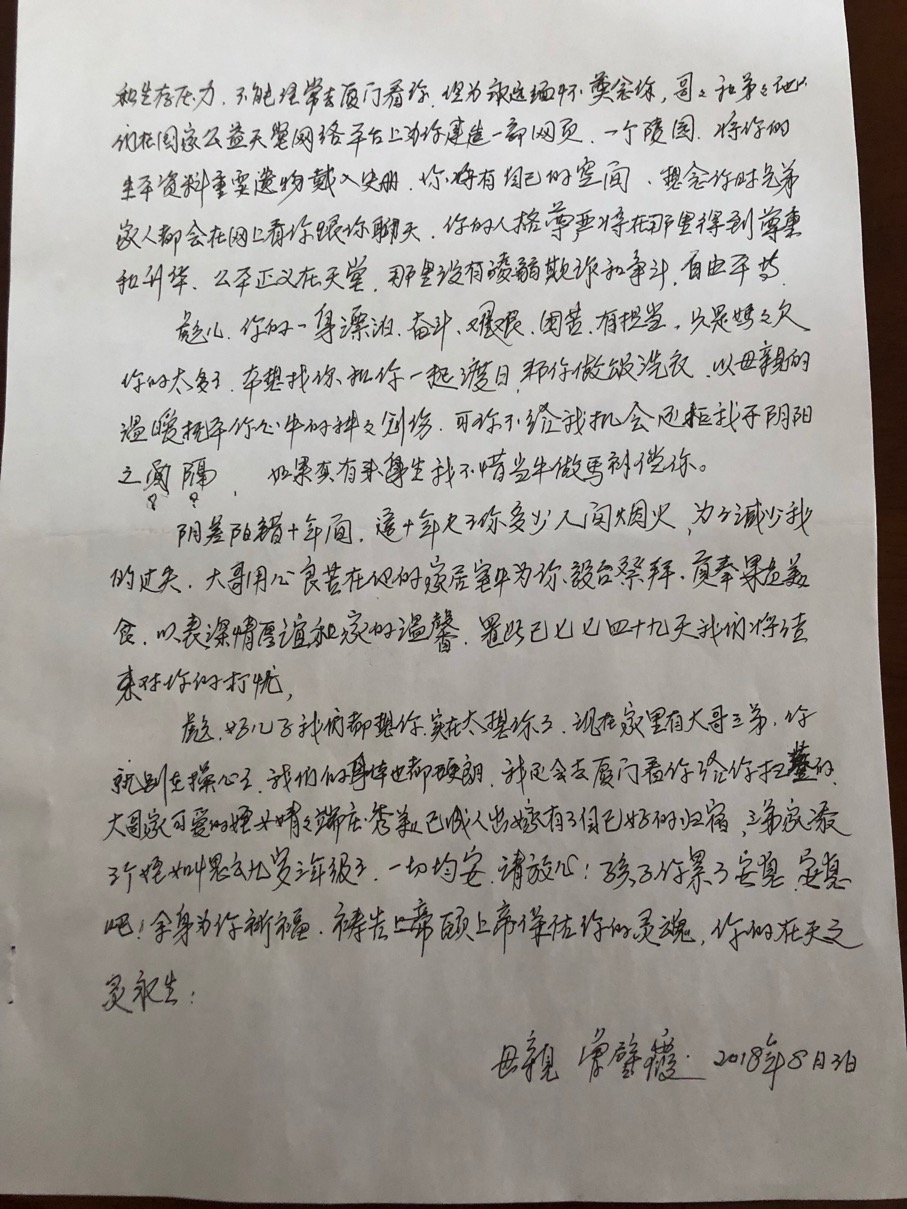 和生存压力，不能经常去厦门看你，但为永远缅怀奠念你，哥哥和弟弟他
们在国家公益天堂网络平台上为你建造一部网页，一个陵园，将你的
生平资料重要遗物载入史册，你将有自己的空间，想念你时兄弟
家人都会在网上看你跟你聊天，你的人格尊严将在那里得到尊重
和升华，公平正义在天堂，那里没有凌弱欺诈和争斗，自由平等，
彪儿，你的一身漂泊、奋斗、艰艰、困苦、有担当，只是妈妈欠
你的太多了，本想找你和你一起渡日，帮你做饭洗衣，以母亲的
温暖抚平你心中的种种创伤，可你不给我机会拒我于阴阳
之间隔，如果真有来生我不惜当牛做马补偿你。
阴差阳错十年间，这十年欠了你多少人间烟火，为了减少我
的过失，大哥用心良苦在他的家居室中为你设台祭拜、贡奉果品美
食，以表深情厚谊和家的温馨，至此已七七四十九天我们将结
束对你的打忧，
彪，好儿子我们都想你，实在太想你了，现在家里有大哥三弟，你
就别在操心了，我们的身体也都硬朗，我还会去厦门看你给你扫墓的，
大哥家可爱的姪女婧婧端庄秀美已成人出嫁有了自己好的归宿，三弟家添
了个姪如叫思么九岁三年级了，一切均安，请放心！孩子你累了安息，安息
吧！余身为你祈福，祷告上帝愿上帝保佑你的灵魂，你的在天之
灵永生：
母亲 2018年8月3日